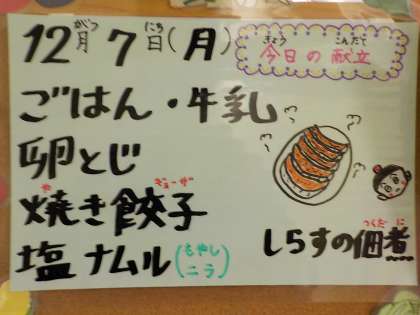 12月7日(月)
がつ にち
今日の献立
きょう こんだて
ごはん・牛乳
卵とじ
焼き餃子
や ギョーザ
塩ナムル(もやし ニラ)
しらすの佃煮
つくだ に